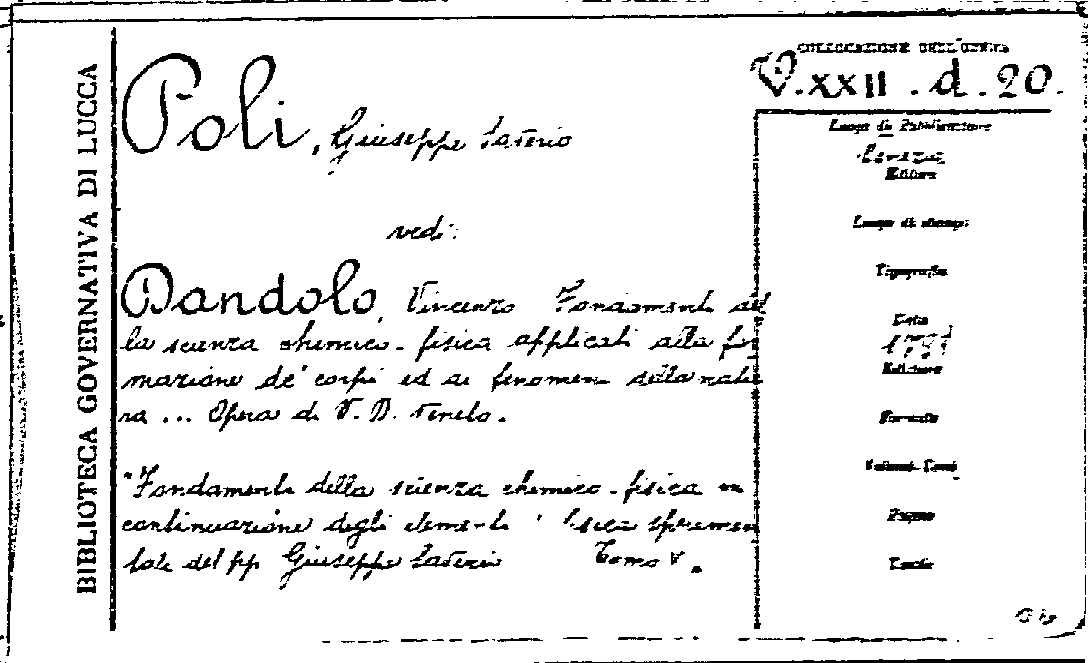 BIBLIOTECA GOVERNATIVA DI LUCCA
COLLOCAZIONE DELL'OPERA
V.XXII.d.20.
Poli, Giuseppe Saverio
vedi:
Dandolo, Vincenzo Fondamenti del
la scienza chimico-fisica applicati alla for
mazione de' corpi ed ai fenomeni della natu
ra ... Opera di V. D. Veneto.
"Fondamenti della scienza chimico-fisica in
continuazione degli elementi fisica sperimen
tale del pp Giuseppe Saverio Tomo V.
Luogo di Pubblicazione
Venezia
Editore
Luogo di stampa
Tipografia
Data
Edizione
Formato
Volumi-Tomi
Pagine
Tavole